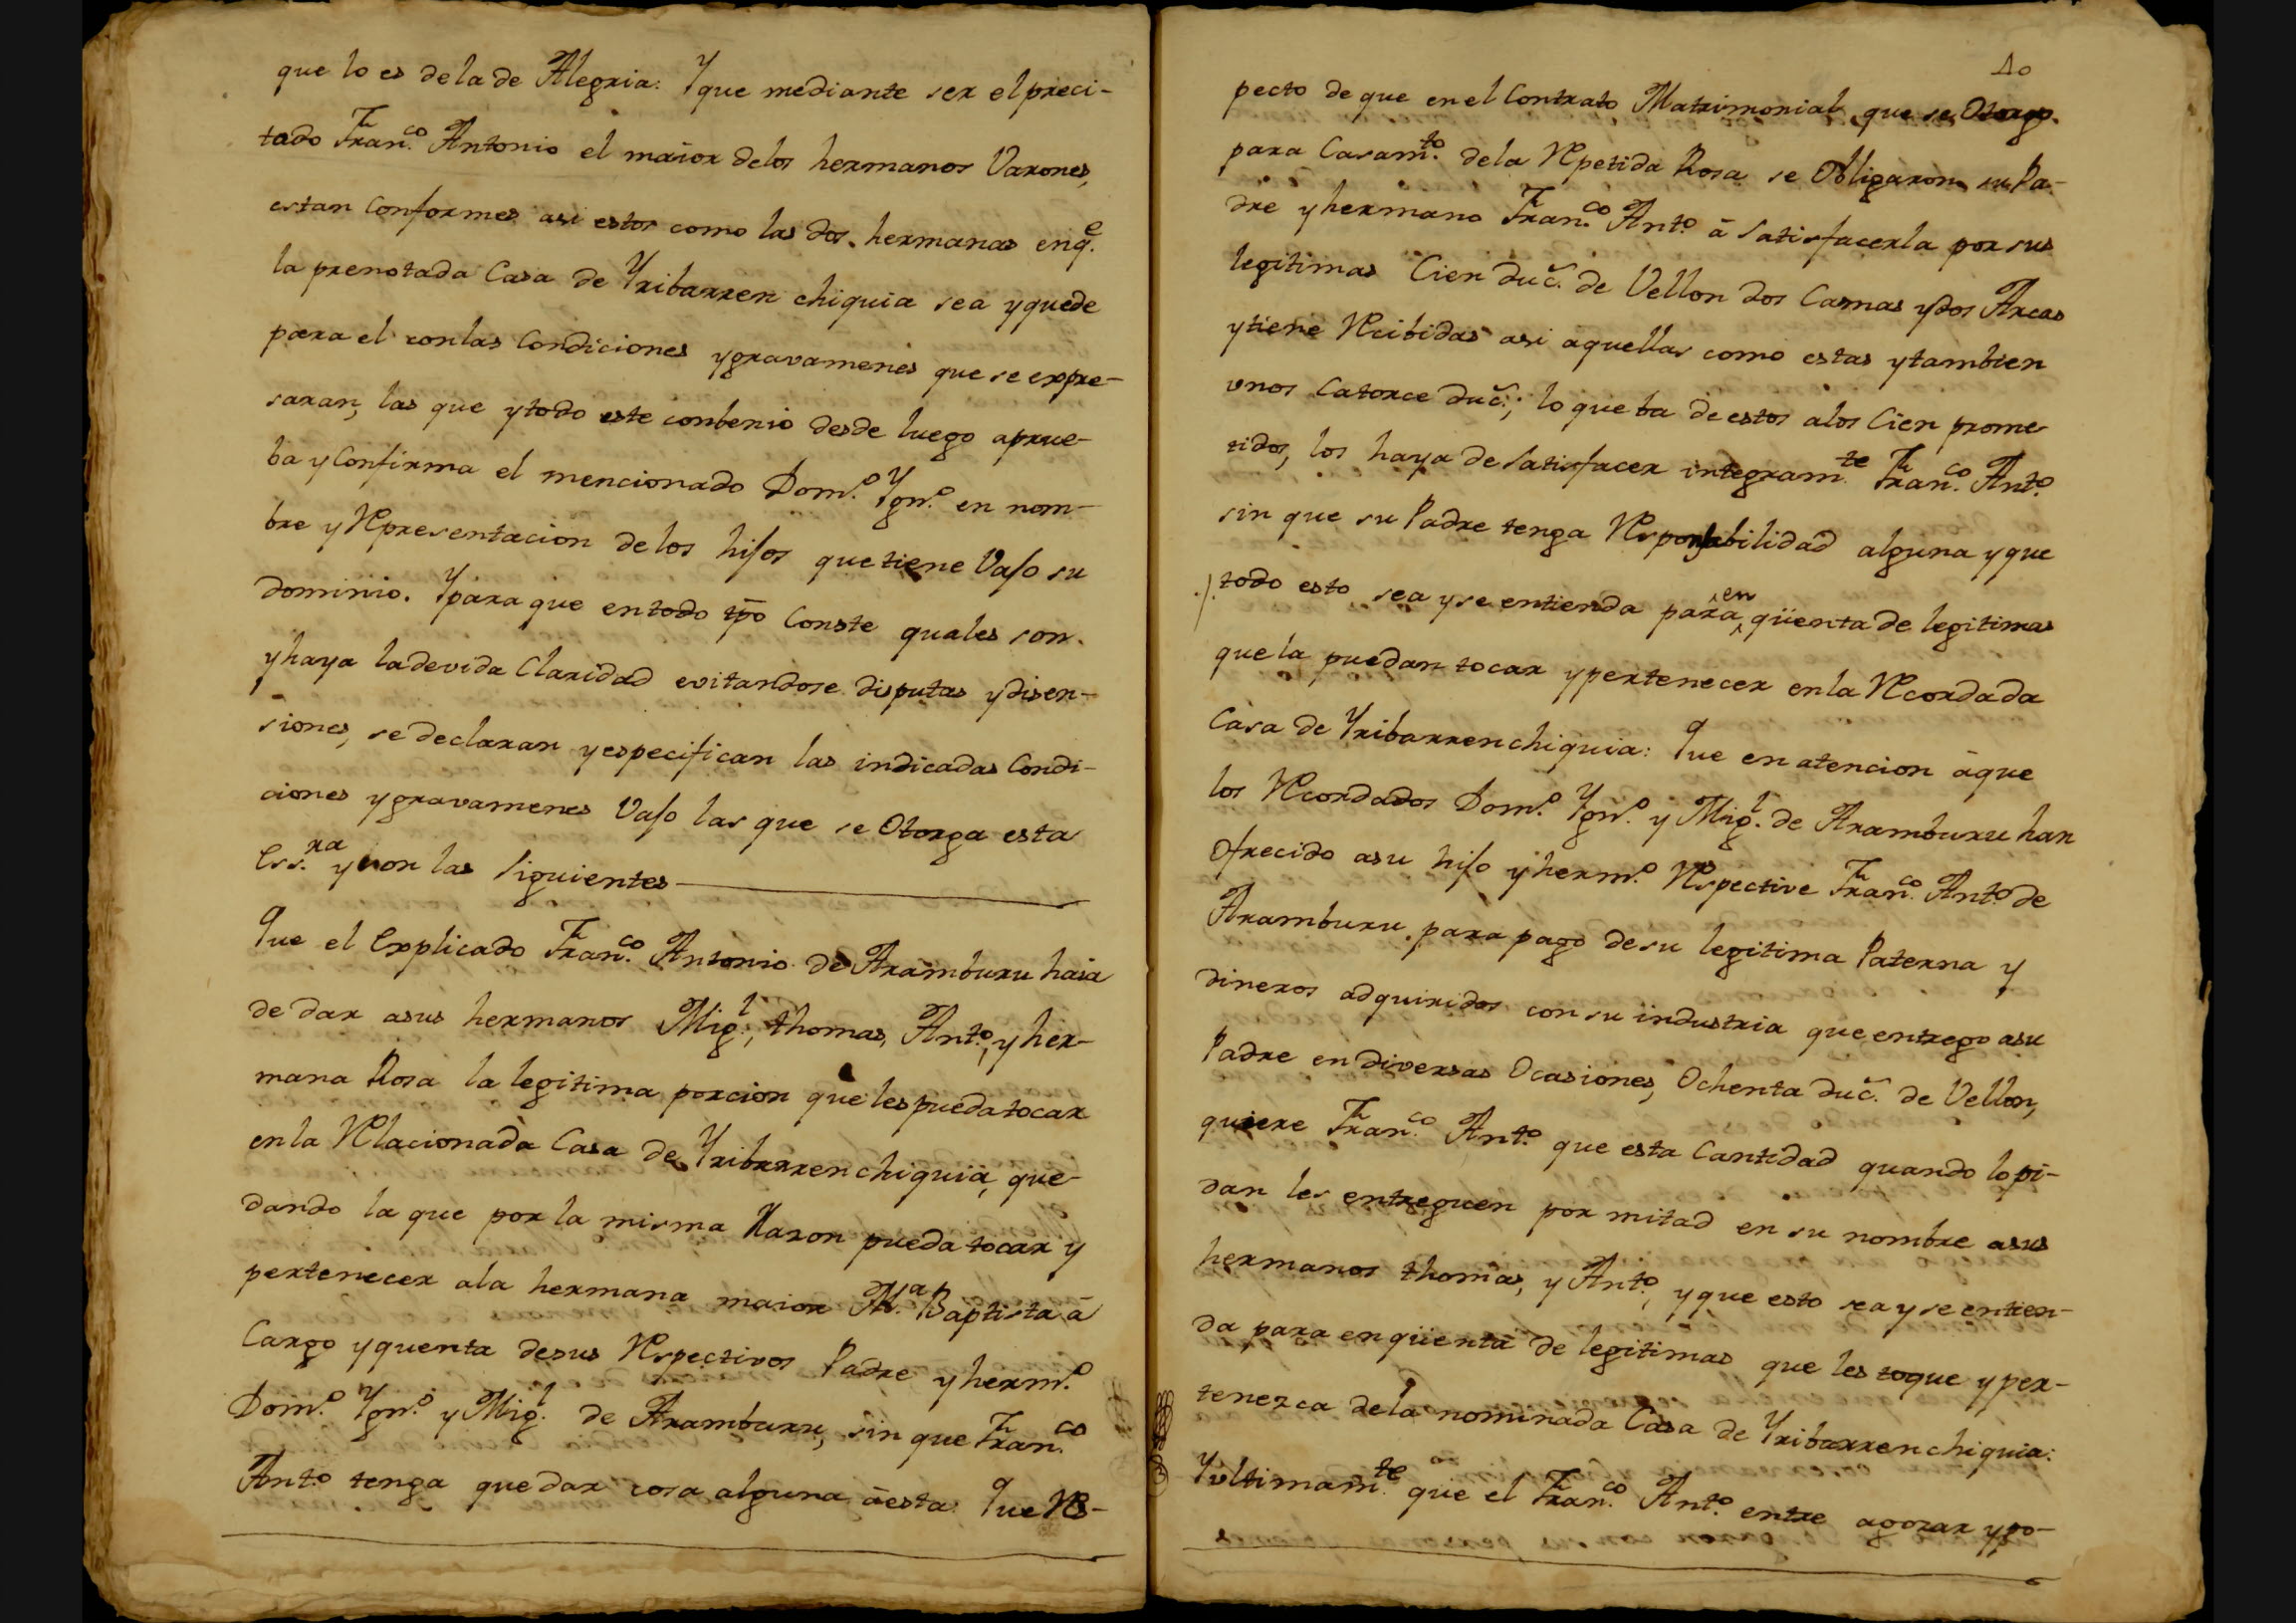 que lo es de la de Alegria: Y que mediante ser el preci-
tado Fran.co Antonio el maior de los hermanos Varones,
estan Conformes asi estos como las dos hermanas en q.e
la prenotada Casa de Yribarren chiquia sea y quede
para el con las Condiciones y gravamenes que se expre-
saran, las que y todo este conbenio desde luego aprue-
ba y Confirma el mencionado Dom.o Ygn.o en nom-
bre y Representacion de los hijos que tiene Vajo su
dominio. Y para que en todo tpo Conste quales son
y haya la devida Claridad evitandose disputas y disen-
siones, se declaran y especifican las indicadas Condi-
ciones y gravamenes Vajo las que se Otorga esta
Ess.ra y son las Siguientes
Que el Explicado Fran.co Antonio de Aramburu haia
de dar a sus hermanos Mig.l, thomas, Ant.o, y her-
mana Rosa la legitima porcion que les pueda tocar
en la Relacionada Casa de Yribarren chiquia, que-
dando la que por la misma Razon pueda tocar y
pertenecer a la hermana maior M.a Baptista à
Cargo y quenta de sus Respectivos Padre y herm.o
Dom.o Ygn.o y Mig.l de Aramburu, sin que Fran.co
Ant.o tenga que dar cosa alguna à esta: Que Res-
40
pecto de que en el Contrato Matrimonial que se Otorgo
para Casam.to de la Repetida Rosa se Obligaron su Pa-
dre y hermano Fran.co Ant.o à Satisfacerla por sus
legitimas Cien duc.s de Vellon dos Camas y dos Arcas
y tiene Recibidas asi aquellas como estas y tambien
unos Catorce duc.s; lo que ba de estos a los Cien prome-
tidos, los haya de Satisfacer integram.te Fran.co Ant.o
sin que su Padre tenga Responsabilidad alguna y que
todo esto sea y se entienda para en qüenta de legitimas
que la puedan tocar y pertenecer en la Recordada
Casa de Yribarren chiquia: Que en atencion à que
los Recordados Dom.o Ygn.o y Mig.l de Aramburu han
Ofrecido a su hijo y herm.o Respective Fran.co Ant.o de
Aramburu para pago de su legitima Paterna y
dineros adquiridos con su industria que entrego a su
Padre en diversas Ocasiones, Ochenta duc.s de Vellon,
quiere Fran.co Ant.o que esta Cantidad quando lo pi-
dan les entreguen por mitad en su nombre a sus
hermanos thomas, y Ant.o, y que esto sea y se entien-
da para en qüenta de legitimas que les toque y per-
tenezca de la nominada Casa de Yribarren chiquia:
Y ultimam.te que el Fran.co Ant.o entre a gozar y po-